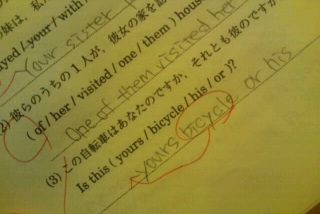 妹は、私
ayed / your / with /
Your sister
2) 彼らのうちの1人が、彼女の家を訪
( of / her / visited / one / them ) hous
One of them visited her
(3) この自転車はあなたのですか、それとも彼のですか
Is this ( yours / bicycle / his / or )?
yours bicycle or his